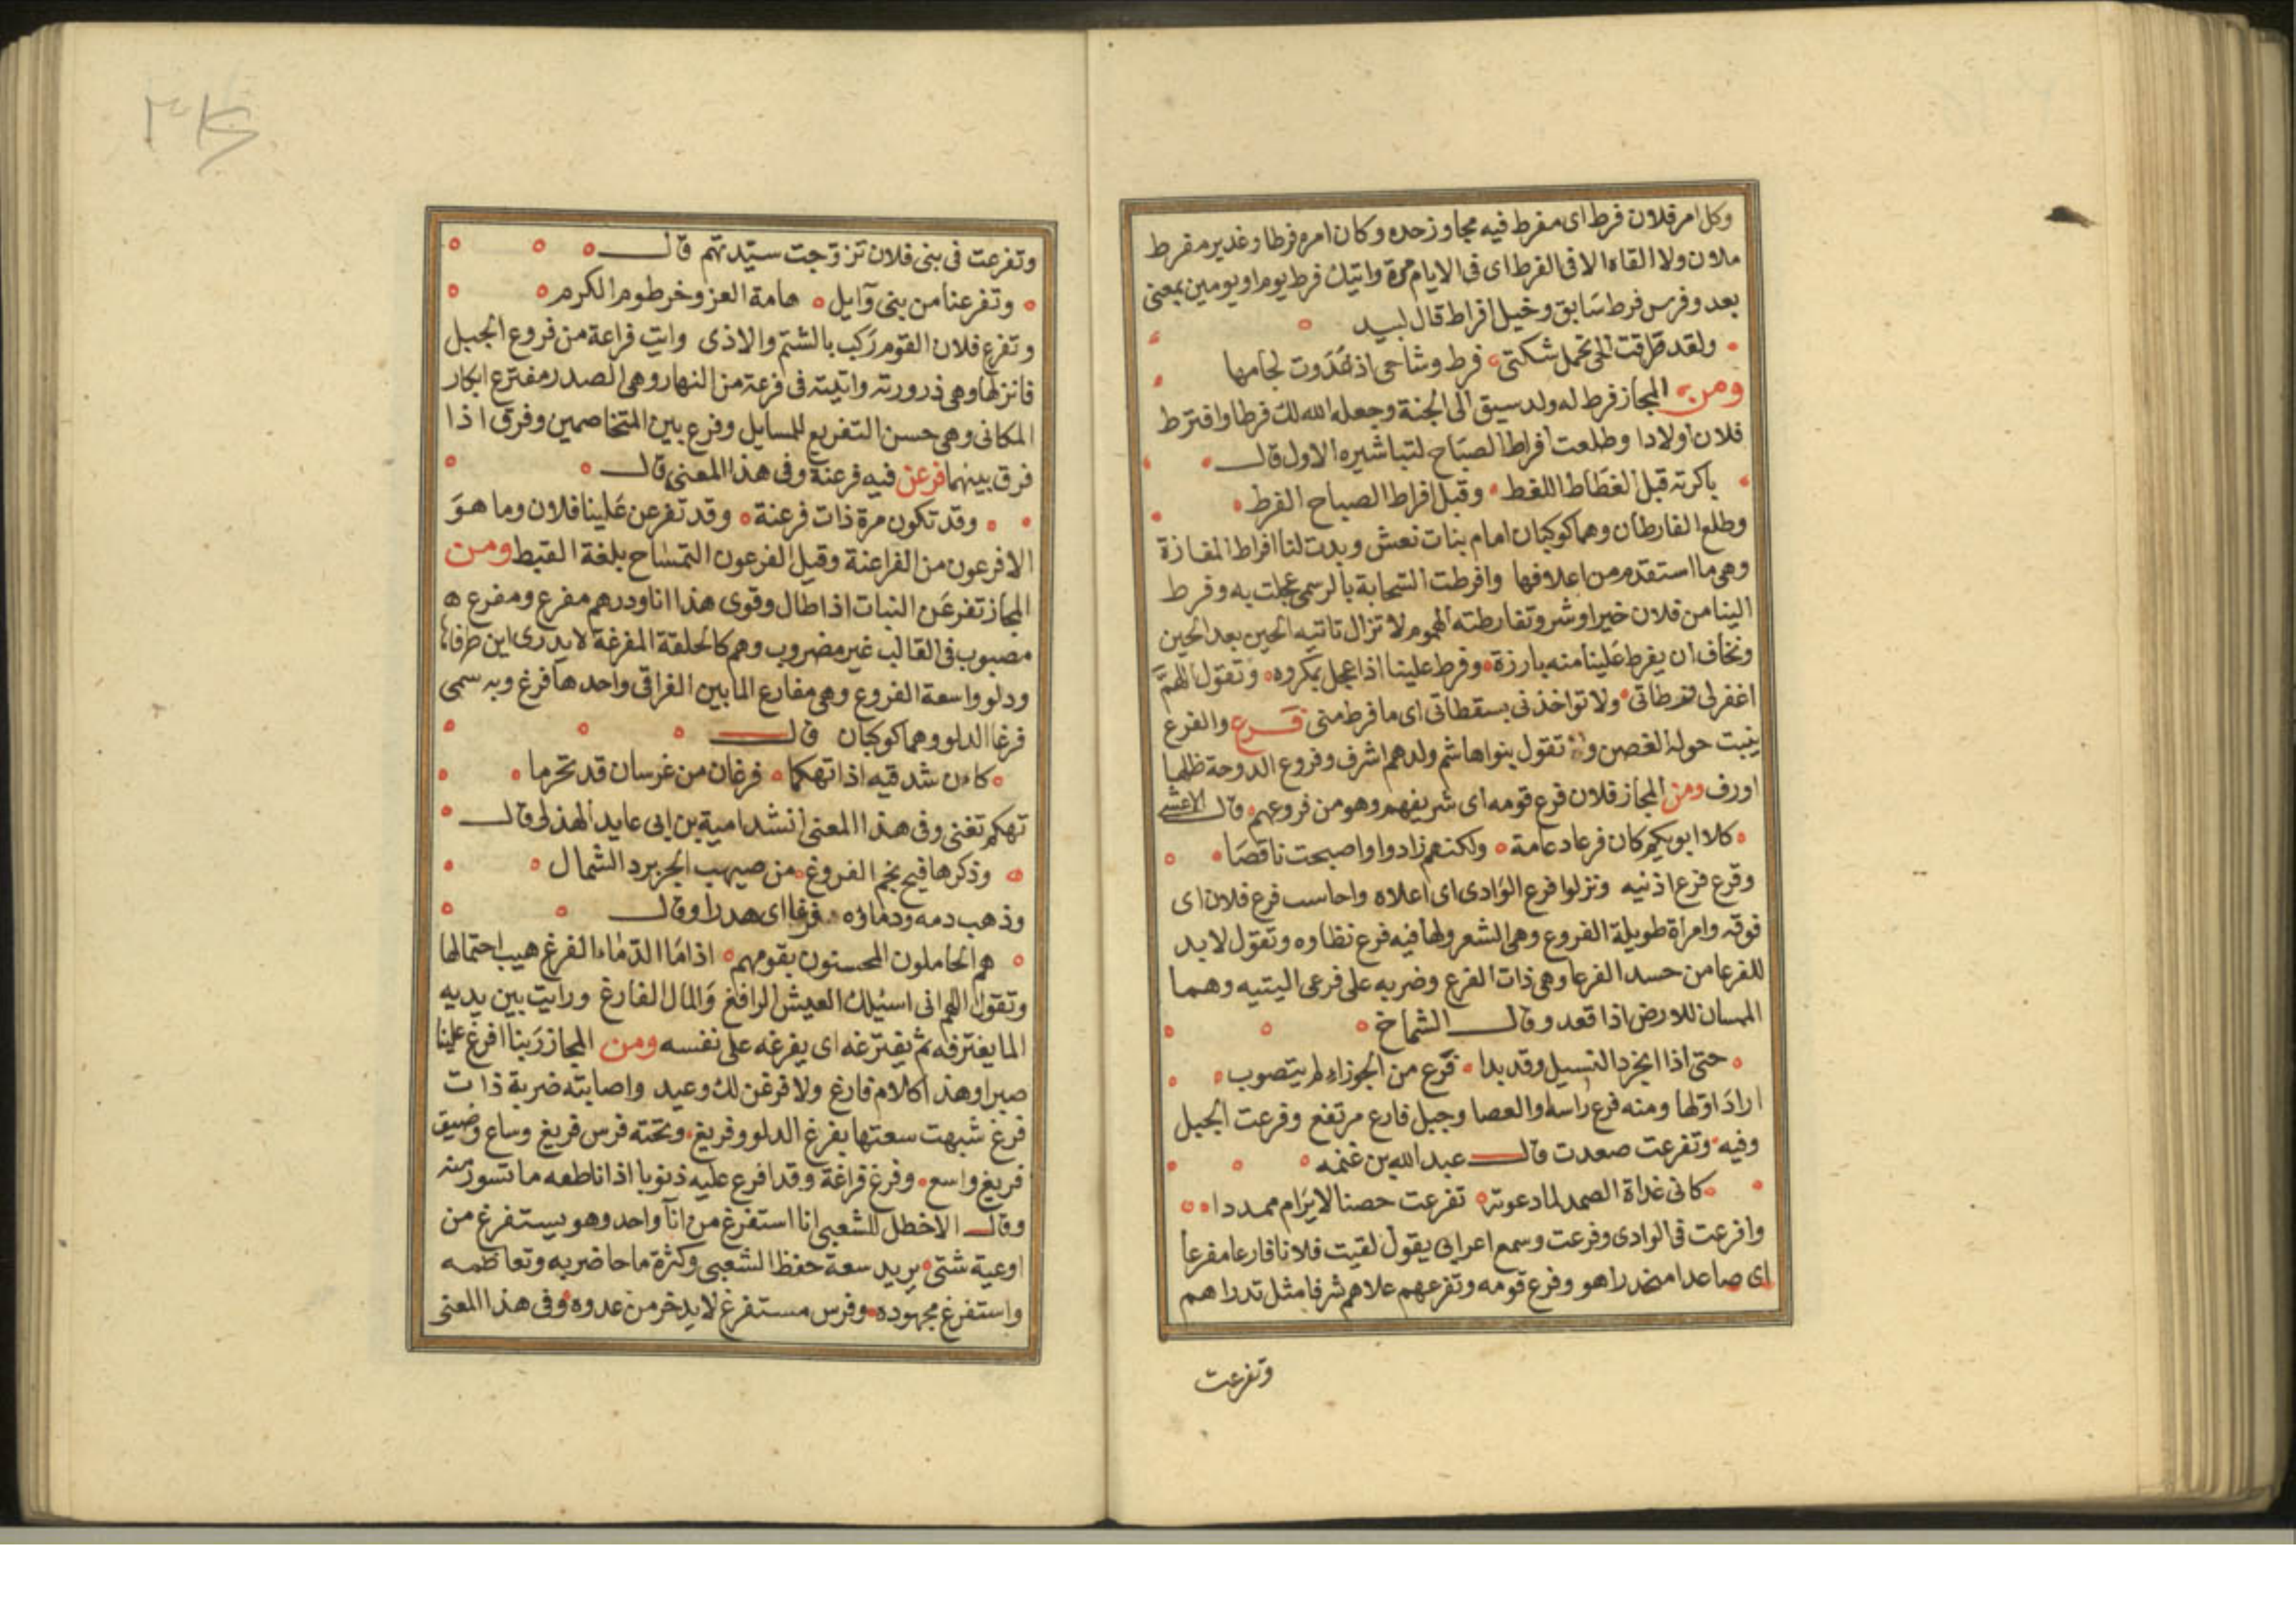 وكل امر فلان فرط اى مفرط فيه مجاوز حده وكان امره فرطا وغدير مفرط
ملان ولا القاه الا فى الفرط اى فى الايام مرة واتيك فرط يوم او يومين بمعنى
بعد وفرس فرط سابق وخيل افراط قال لبيد
ولقد طرقت الحى تحمل شكتى فرط وشاحى اذ غدوت لجامها
ومن المجاز فرط له ولد سبق الى الجنة وجعله الله لك فرطا وافترط
فلان اولادا وطلعت افراط الصباح لتباشيره الاول قال
باكرته قبل الغطاط اللغط وقبل افراط الصباح الفرط
وطلع الفارطان وهما كوكبان امام بنات نعش وبدت لنا افراط المفازة
وهى ما استقدم من اعلافها وافرطت السحابة بالرسمى عجلت به وفرط
الينا من فلان خير او شر وتفارطته الهموم لا تزال تاتيه الحين بعد الحين
ونخاف ان يفرط علينا منه بارزة وفرط علينا اذا عجل بمكروه وتقول اللهم
اغفر لى فرطاتى ولا تواخذنى بسقطاتى اى ما فرط منى فرع والفرع
ينبت حوله الغصن وتقول بنوا هاشم ولدهم اشرف وفروع الدوحة ظلها
اورف ومن المجاز فلان فرع قومه اى شريفهم وهو من فروعهم قال الاعشى
كلا ابويكم كان فرعا دعامة ولكنهم زادوا واصبحت ناقصا
وقرع فرع اذنيه ونزلوا فرع الوادى اى اعلاه واحاسب فرع فلان اى
فوقه وامراة طويلة الفروع وهى الشعر ولها فيه فرع نظاوه وتقول لا بد
للفرعا من حسد الفرعا وهى ذات الفرع وضربه على فرعى اليتيه وهما
المسان للارض اذا قعد وقال الشماخ
حتى اذا انجرد النسيل وقد بدا فرع من الجوزاء لم يتصوب
اراد اولها ومنه فرع راسه والعصا وجبل فارع مرتفع وفرعت الجبل
وفيه وتفرعت صعدت قال عبد الله بن غنمه
كانى غداة الصمد لما دعوته تفرعت حصنا لا يرام ممددا
وافرعت فى الوادى وفرعت وسمع اعرابى يقول لقيت فلانا فارعا مفرعا
اى صاعدا منحدرا هو وفرع قومه وتفرعهم علاهم شرفا مثل تدراهم
وتفرعت
وتفرعت فى بنى فلان تزوجت سيدتهم قال
وتفرعنا من بنى وآيل هامة العز وخرطوم الكرم
وتفرع فلان القوم ركب بالشتم والاذى وايت فراعة من فروع الجبل
فانزلها وهى ذرورته واتيته فى فرعة من النهار وهى الصدر مفترع ابكار
المكانى وهى حسن التفريع للمسايل وفرع بين المتخاصمين وفرق اذا
فرق بينهما فرعن فيه فرعنة وفى هذا المعنى قال
وقد تكون مرة ذات فرعنة وقد تفرعن علينا فلان وما هو
الا فرعون من الفراعنة وقيل الفرعون التمساح بلغة القبط ومن
المجاز تفرعن النبات اذا طال وقوى هذا انا ودرهم مفرع ومفرع
مصبوب فى القالب غير مضروب وهم كالحلقة المفرغة لا يدرى اين طرفاها
ودلو واسعة الفروع وهى مفارع الما بين الفراقى واحدها فرغ وبه سمى
فرغا الدلو وهما كوكبان قال
كان شدقيه اذا تهكما فرغان من غرسان قد تخرما
تهكم تغنى وفى هذا المعنى انشد امية بن ابى عايد الهذلى قال
وذكرها فيح نجم الفروغ من صيهب الحر برد الشمال
وذهب دمه ودماؤه فرغا اى هدرا وقال
هم الحاملون المحسنون بقومهم اذا ما الدماء الفرغ هيب احتمالها
وتقول اللهم انى اسئلك العيش الرافغ والمال الفارغ ورايت بين يديه
الما يغترفه ثم يفترغه اى يفرغه على نفسه ومن المجاز ربنا افرغ علينا
صبرا وهذا كلام فارغ ولا فرغن لك وعيد واصابته ضربة ذات
فرغ شبهت سعتها بفرغ الدلو وفريغ وتحته فرس فريغ وساع وضيق
فريغ واسع وفرغ فراغة وقد افرع عليه ذنوبا اذا ناطعه ما تسور منه
وقال الاخطل للشعبى انا استفرغ من انآ واحد وهو يستفرغ من
اوعية شتى يريد سعة حفظ الشعبى وكثرة ما حاضر به وتعاظمه
واستفرغ مجهوده وفرس مستفرغ لا يدخر من عدوه وفى هذا المعنى